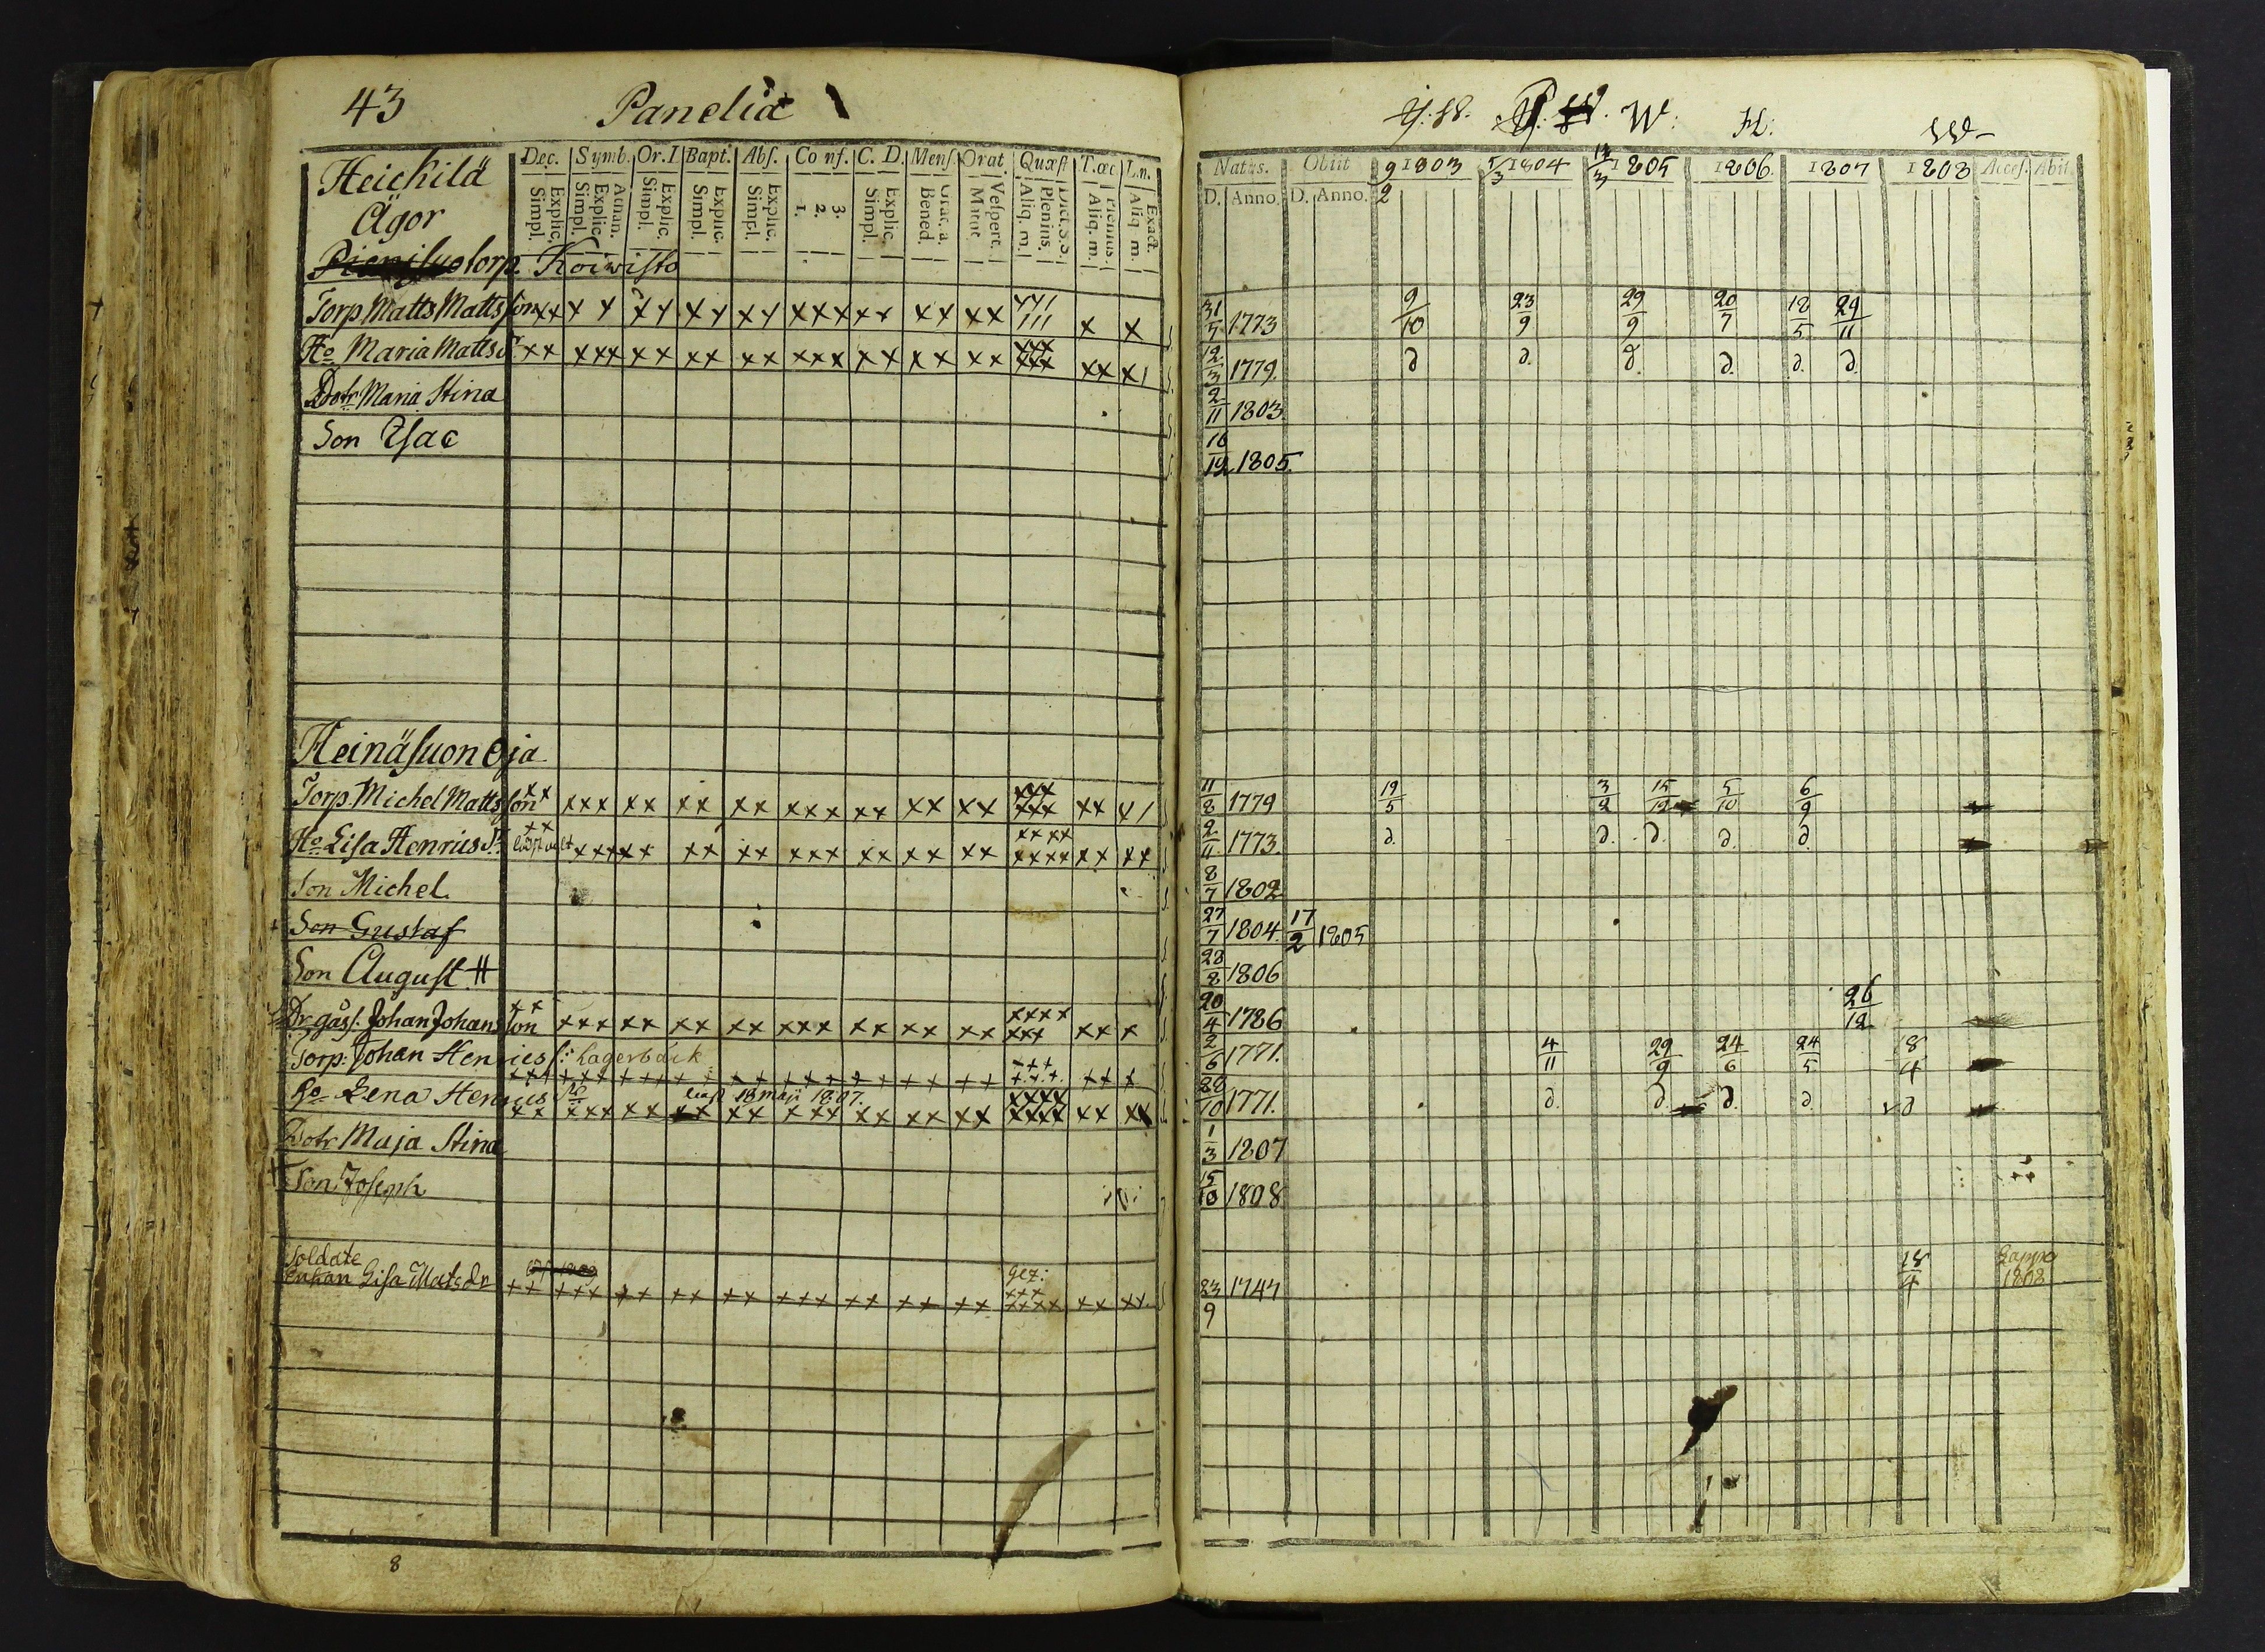 43 Paneliä
Heickilä
Ägor
torp. Koiwisto
Dec. Symb. Or. D Bapt. Abſ. Conf. C. D. Menſ. Orat. Quæſt T. œc L. n.
Explic. Simpl. Athan. Explic. Simpl. Explic. Simpl. Explic. Simpl. Explic. Simpl. 3. 2. 1. Explic. Simpl. Grat. a. Bened. Veſpert. Matut. Dict. S. S. Plenius. Aliq. m. Plenius. Aliq. m. Exact. Aliq. m.
Torp. Matts Mattsſon xx x y x y x y x y xxx xx xx xx x x
Ho Maria Matts dr. xx xxx xx xx xx xxx xx xx xx xxx xxx xx x1
Dotr. Maria Stina
Son Iſac
Heinäſuon Oja
Torp. Michel Mattsſon xx xxx xx xx xx xxx xx xx xx xxx xxx xx x1
Ho. Liſa Henrics dr. xx xxx xx xx xx xxx xx xx xx xxxx xxxx xx xx
Son Michel.
Son Gustaf
Son Auguſt #
Dr. gåss. Johan Johansſon xx xxx xx xx xx xxx xx xx xx xxxx xxx xx x
Torp. Johan Henricsſ: Lagerbäck
Ho Lena Henrics 18 maji 1807.
Dotr Maja Stina
Son Joseph
Soldate
Enkan Lisa Matsdr
8
W. H:
Natus. Obiit 1803 1804 1805 1806. 1807 1808 Acceſ. Abiit
D. Anno. D. Anno. 9/2 5/3 13/3
31/5 1773 9/10 23/9 29/9 20/7 18/5 29/11
12/3 1779. d d. d. d. d. d.
2/11 1803.
16/12 1805.
11/8 1779 19/5 3/2 15/12 5/10 6/9
2/11 1773. d. d. d. d. d.
8/7 1802
27/7 1804. 17/2 1805
28/8 1806
20/4 1786 26/12
2/6 1771. 4/11 29/9 24/6 24/5 18/4
28/10 1771. d. d. d. d. d
1/3 1807
15/10 1808
23/9 1747 18/4 1808